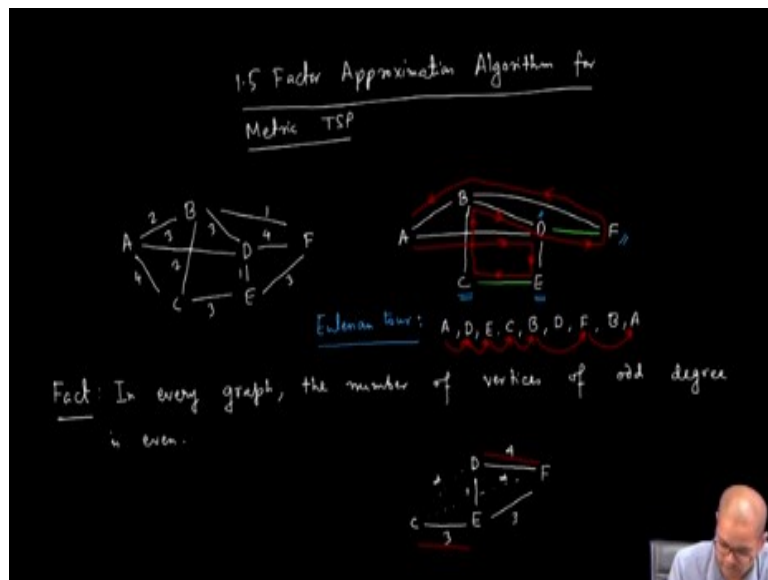 1.5 Factor Approximation Algorithm for
Metric TSP
B
2
3
3
1
A
D
4
F
4
2
1
C
3
E
3
B
A
D
F
C
E
Eulerian tour: A, D, E, C, B, D, F, B, A
Fact: In every graph, the number of vertices of odd degree
is even.
D
4
F
1
C
E
3
3